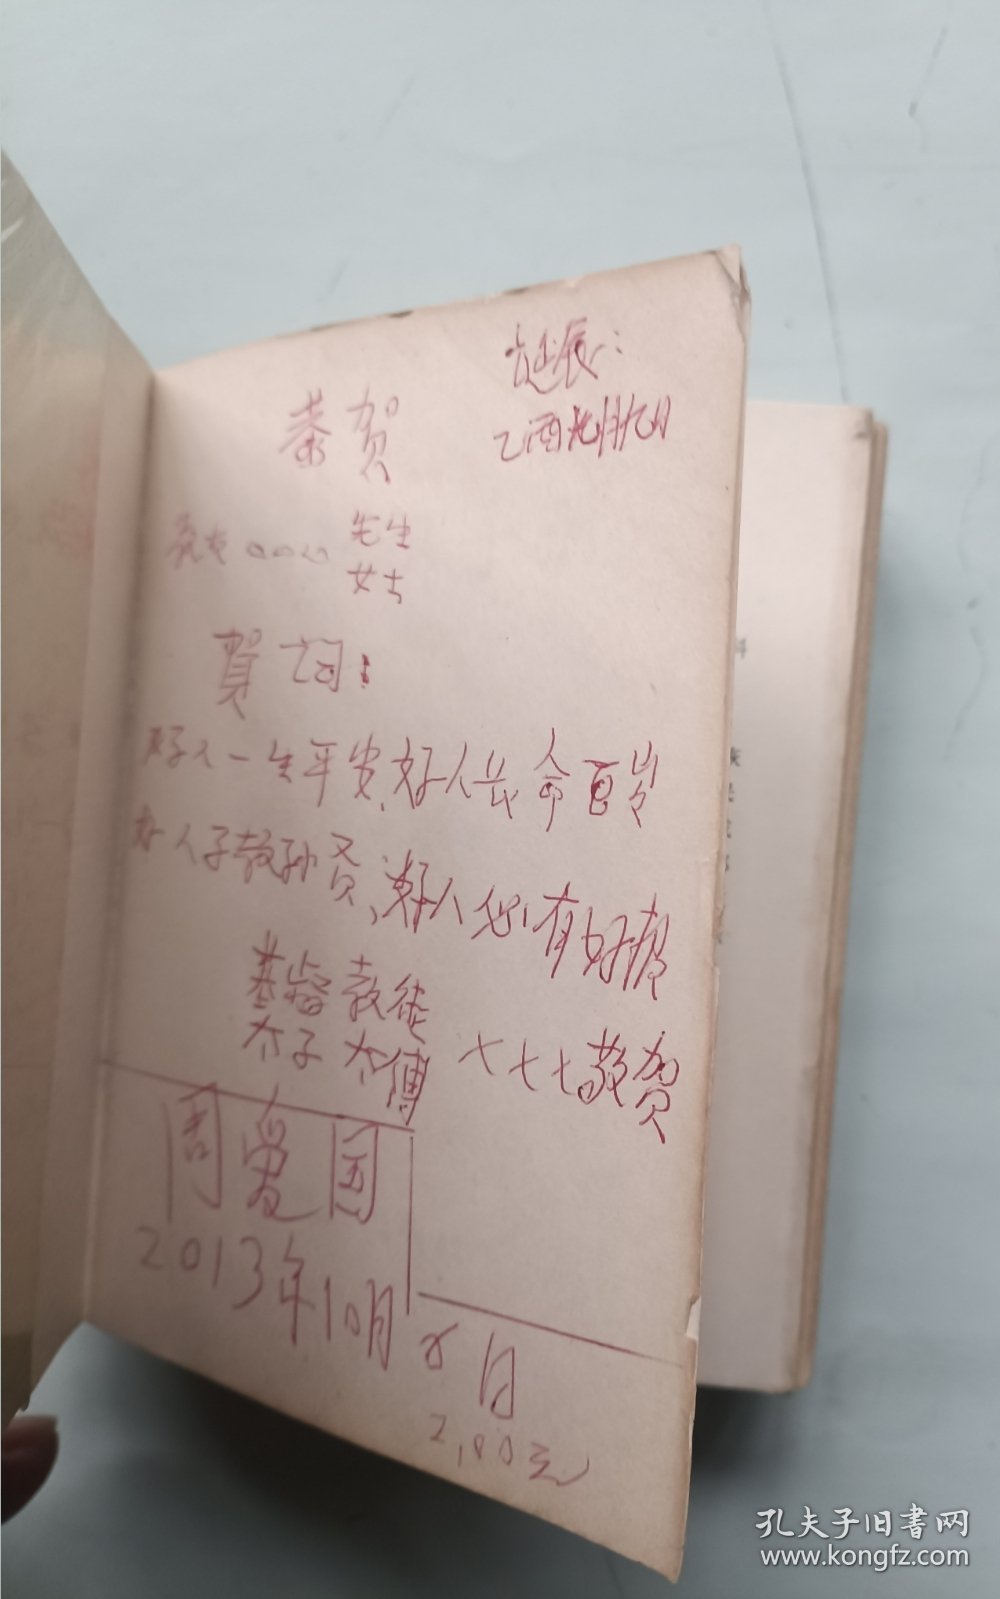 诞辰:
恭贺
乙酉 月 九日
教友〇〇〇 先生
女士
賀词:
好人一生平安、好人长命百岁
好人子教孙贤、好人必有好报
基督教徒
太子太傅 七七七敬贺
周爱国
2013年10月8日
2,00元
科
孔夫子旧书网
www.kongfz.com